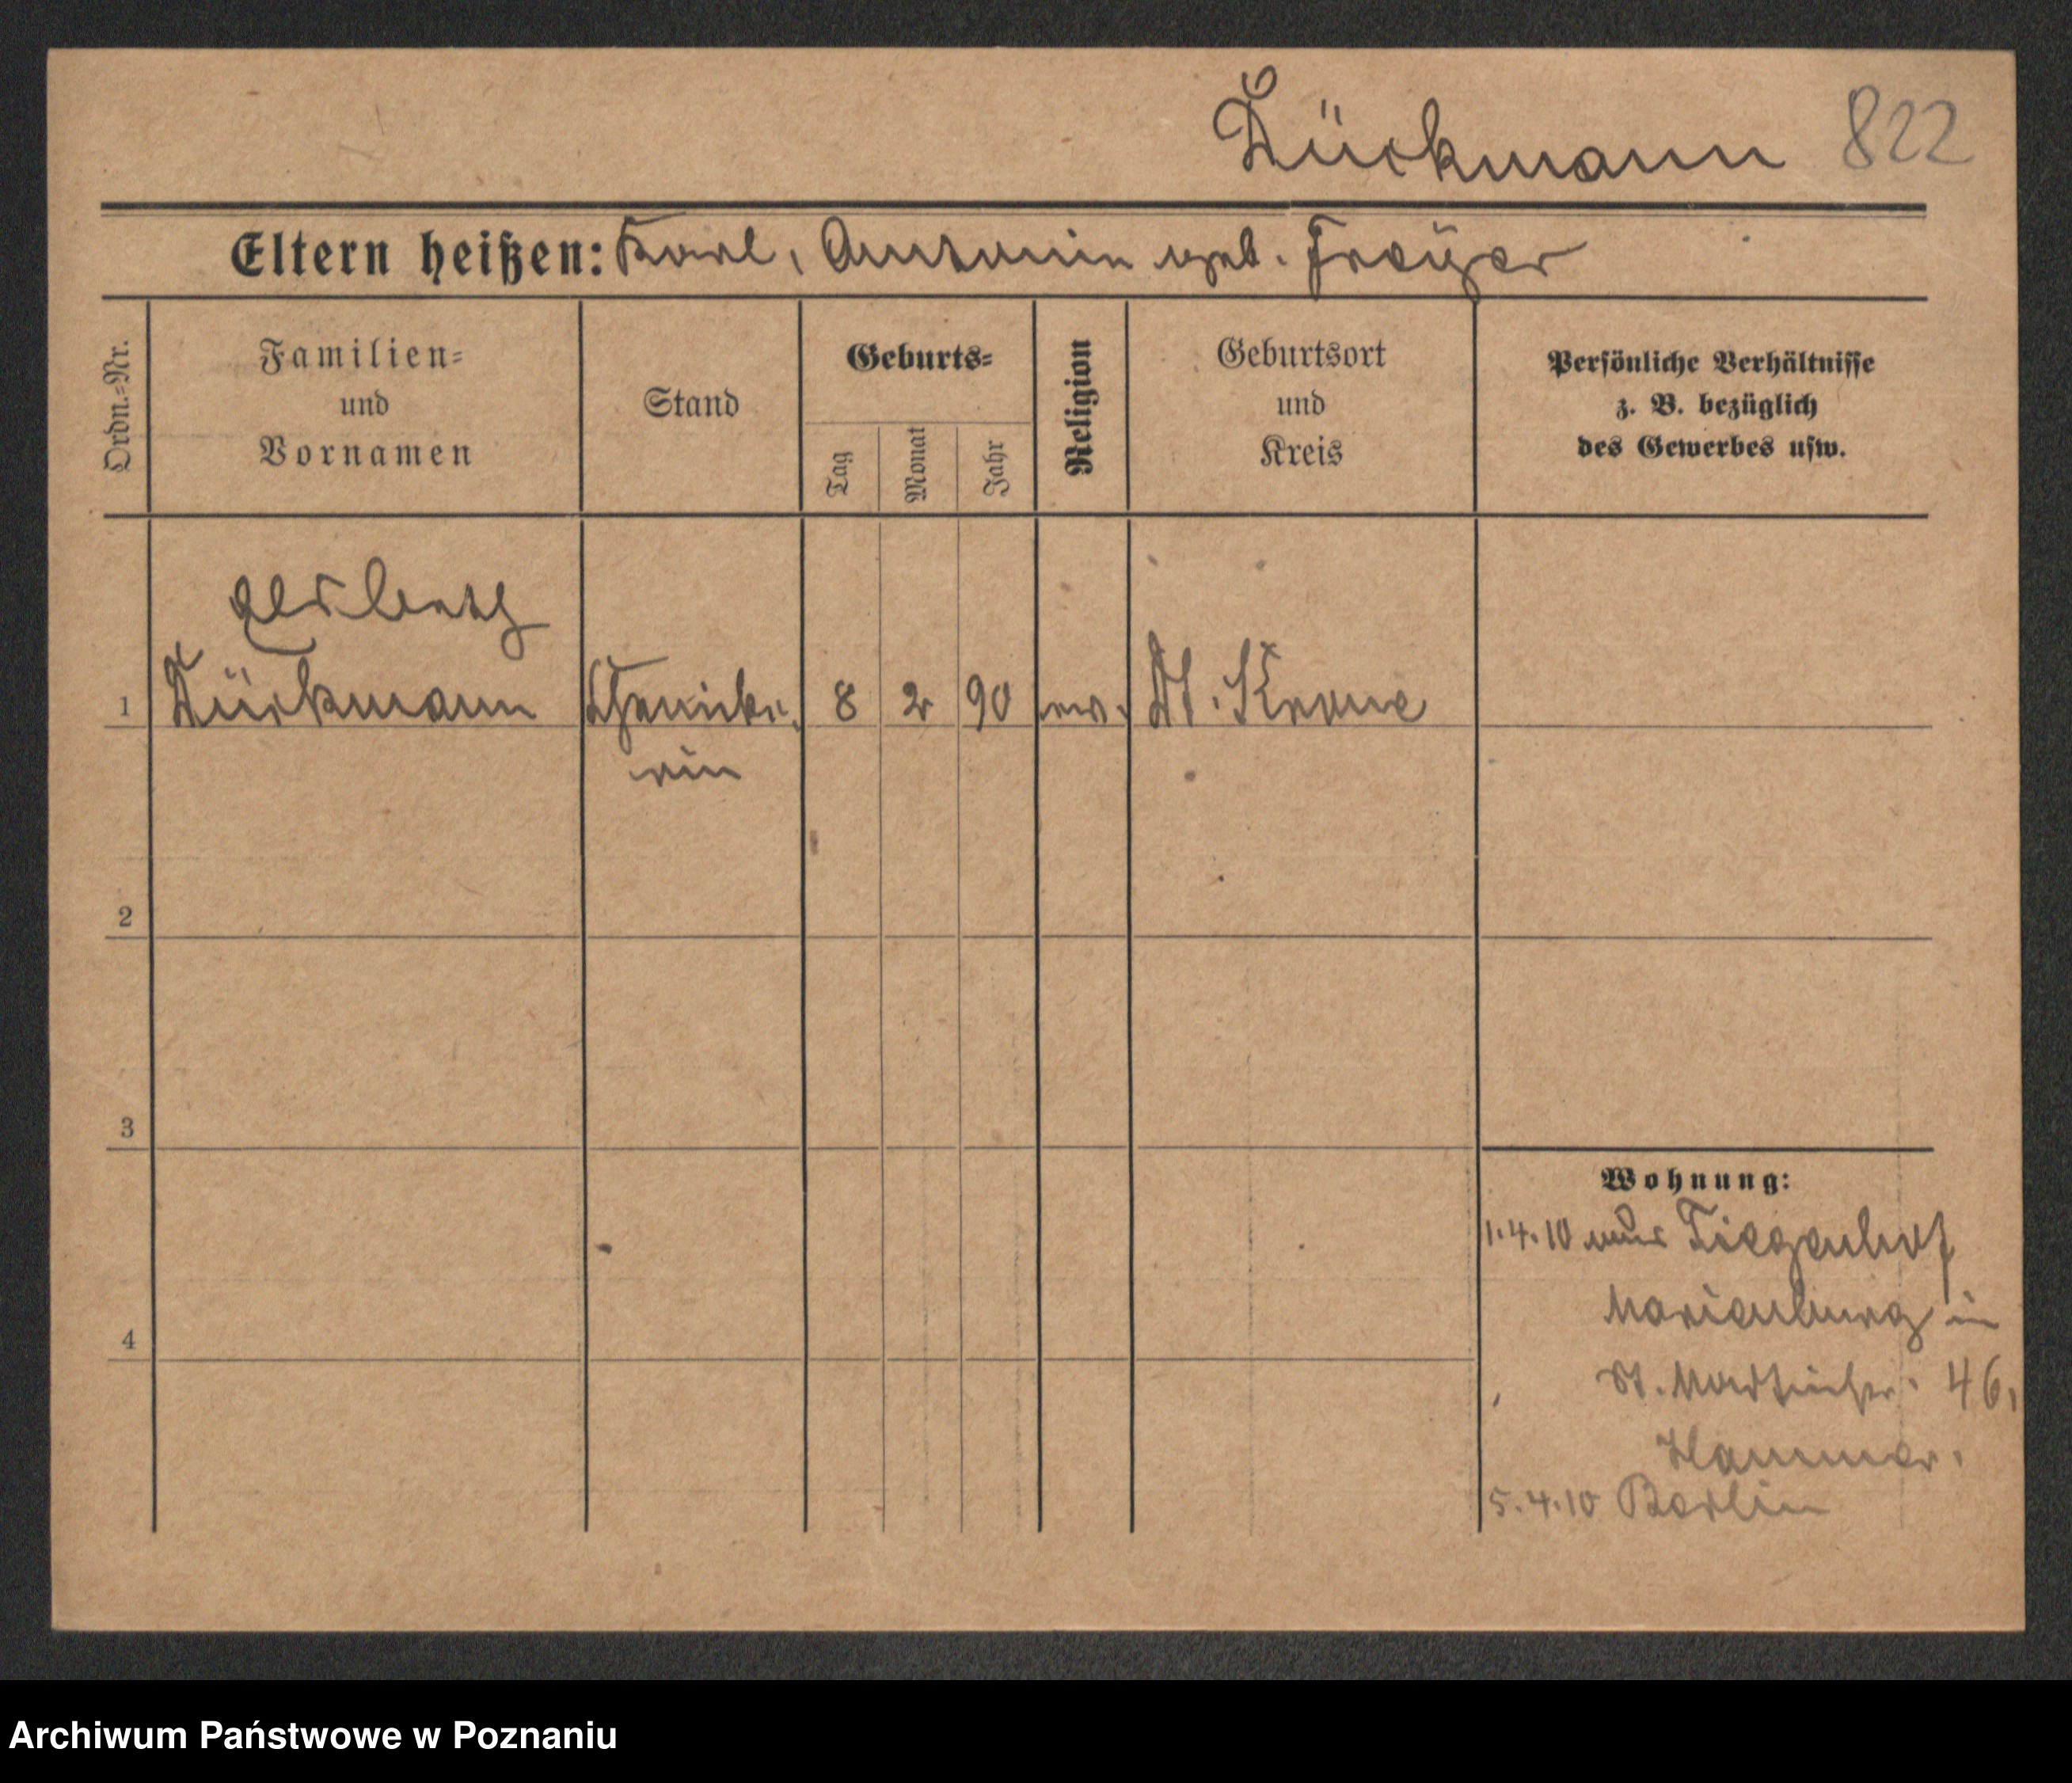 Dückmann 822
Eltern heißen: Karl, Antonie geb. Freyer
Ordn.=Nr.
Familien=
und
Vornamen
Stand
Geburts=
Tag
Monat
Jahr
Religion
Geburtsort
und
Kreis
Persönliche Verhältnisse
z. B. bezüglich
des Gewerbes usw.
1 Dückmann 8 2 90 ev. Dt. Krone
rin
2
3
4
Wohnung:
1.4.10 aus Tiegenhof
Marienburg in
St. 46,
Hammer.
5.4.10 Berlin
Archiwum Państwowe w Poznaniu